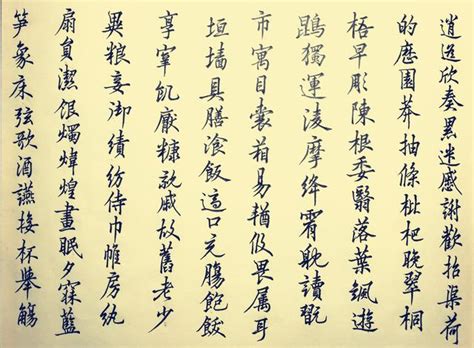 逍遥欣奏累遣感謝歡招渠荷
的歷園莽抽條枇杷晚翠桐
梧早彫陳根委翳落葉飄遊
鵾獨運淩摩絳霄耽讀翫
市寓目囊箱易輶攸畏属耳
垣墻具膳飡飯適口充腸飽飫
享宰飢厭糠親戚故舊老少
異粮妾御績紡侍巾帷房紈
扇員潔銀燭煒煌晝眠夕寐藍
笋象床弦歌酒讌接杯舉觴